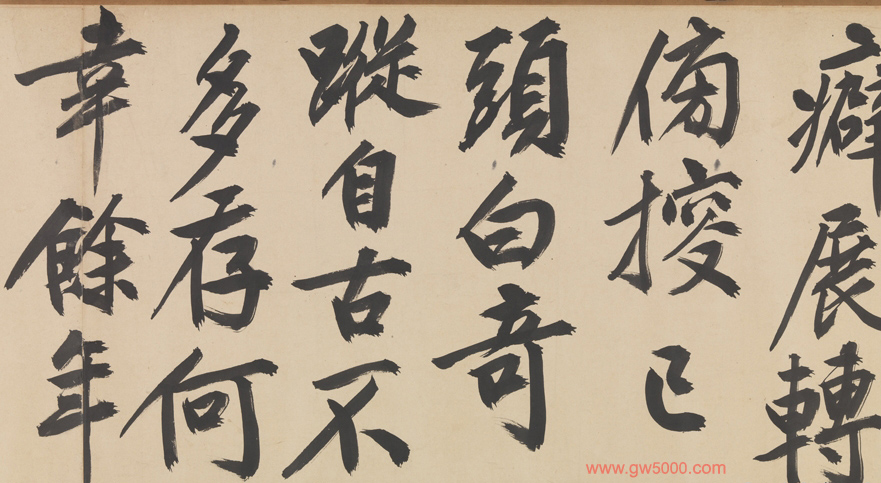 癖展轉
傍搜已
頭白奇
蹤自古不
多存何
幸餘年
www.gw5000.com